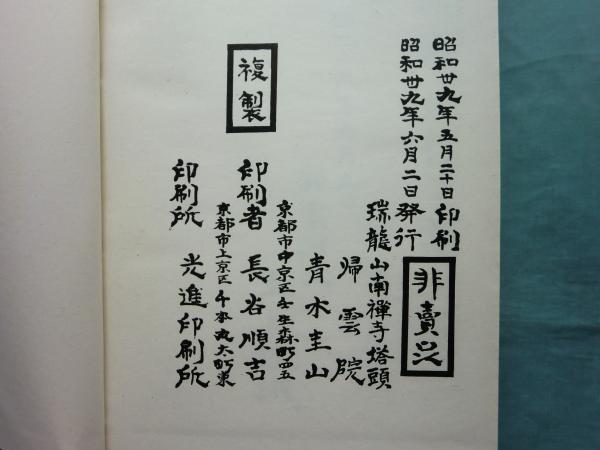 昭和卅九年五月二十日印刷
昭和卅九年六月二日発行
非賣品
瑞龍山南禪寺塔頭
帰雲院
青木圭山
京都市中京区壬生森町四五
複製
印刷者 長谷順吉
京都市上京区千本丸太町東
印刷所 光進印刷所